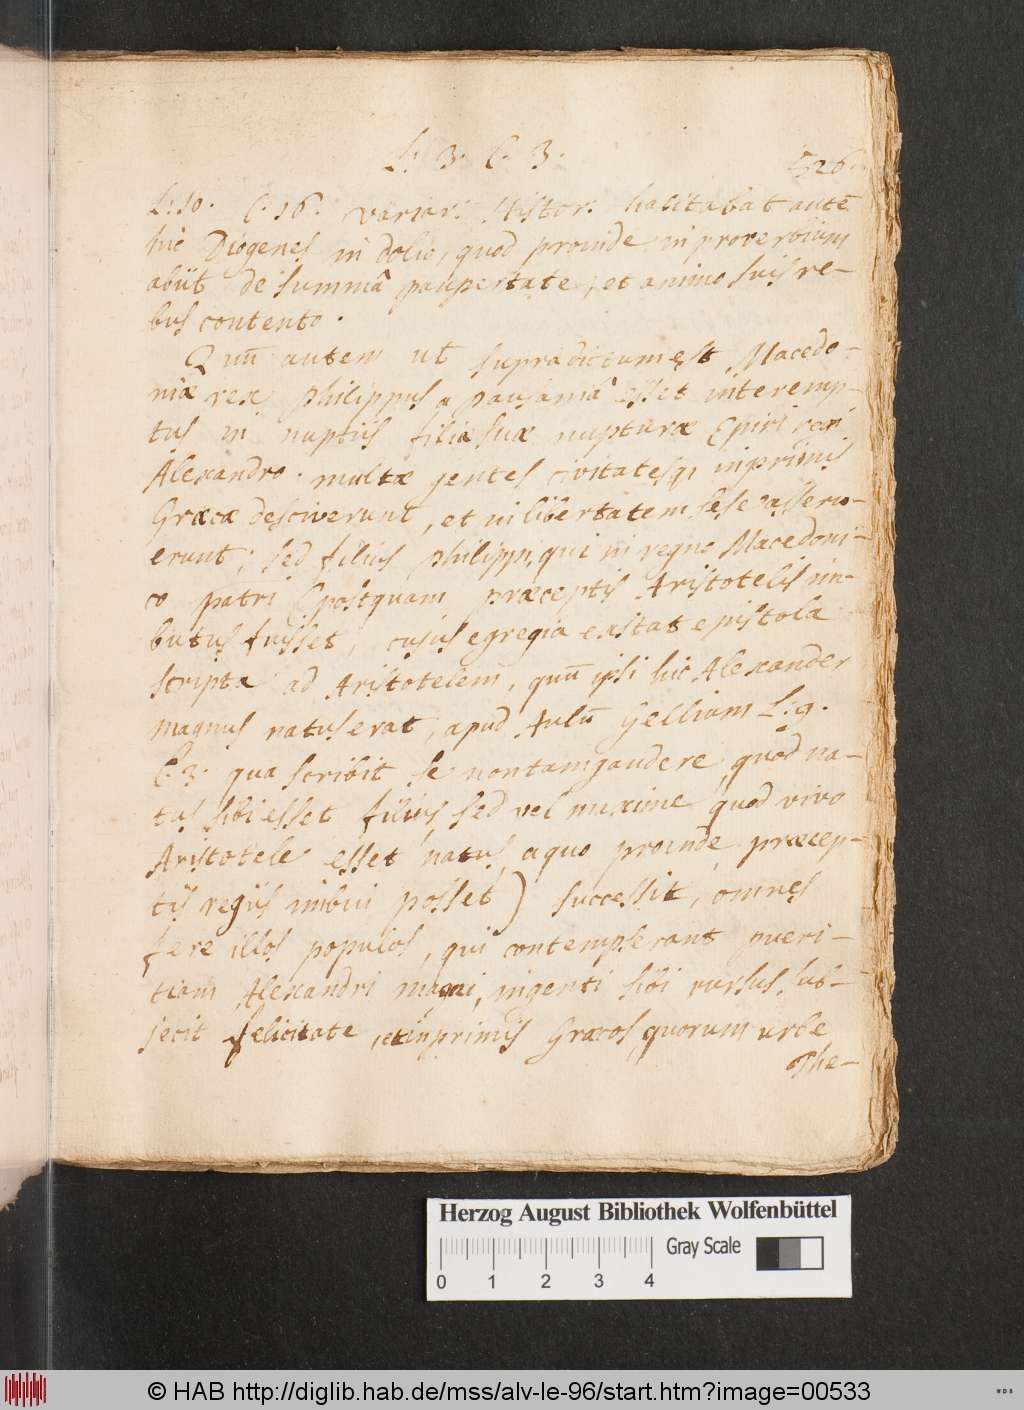 L: 3. C. 3.
526.
L: 10. C. 16. variar: Histor. habitabat autē
hic Diogenes in dolio, quod proinde in proverbium
abiit de summâ paupertate, et animo suis re-
bus contento.
Quū autem ut supradictum est, Macedo-
niæ rex Philippus a Pausaniâ esset interemp-
tus in nuptiis filiæ suæ nupturæ Epiri regi
Alexandro. multæ gentes civitatesq; inprimis
Græcæ desciverunt, et in libertatem sese asseru-
erunt; sed filius Philippi, qui in regno Macedoni-
co patri (postquam præceptis Aristotelis im-
butus fuisset, cujus egregia exstat epistola
scripta ad Aristotelem, quū ipsi hic Alexander
magnus natus erat, apud Aulū Gellium L: 9.
C. 3. qua scribit se non tam gaudere, quòd na-
tus sibi esset filius, sed vel maxime quod vivo
Aristotele esset natus, a quo proinde præcep-
tis regiis imbui posset) successit, omnes
fere illos populos, qui contempserant pueri-
tiam Alexandri magni, ingenti sibi rursus sub-
jecit felicitate, et inprimis Græcos, quorum urbe
The-
Herzog August Bibliothek Wolfenbüttel
Gray Scale
0 1 2 3 4
© HAB http://diglib.hab.de/mss/alv-le-96/start.htm?image=00533